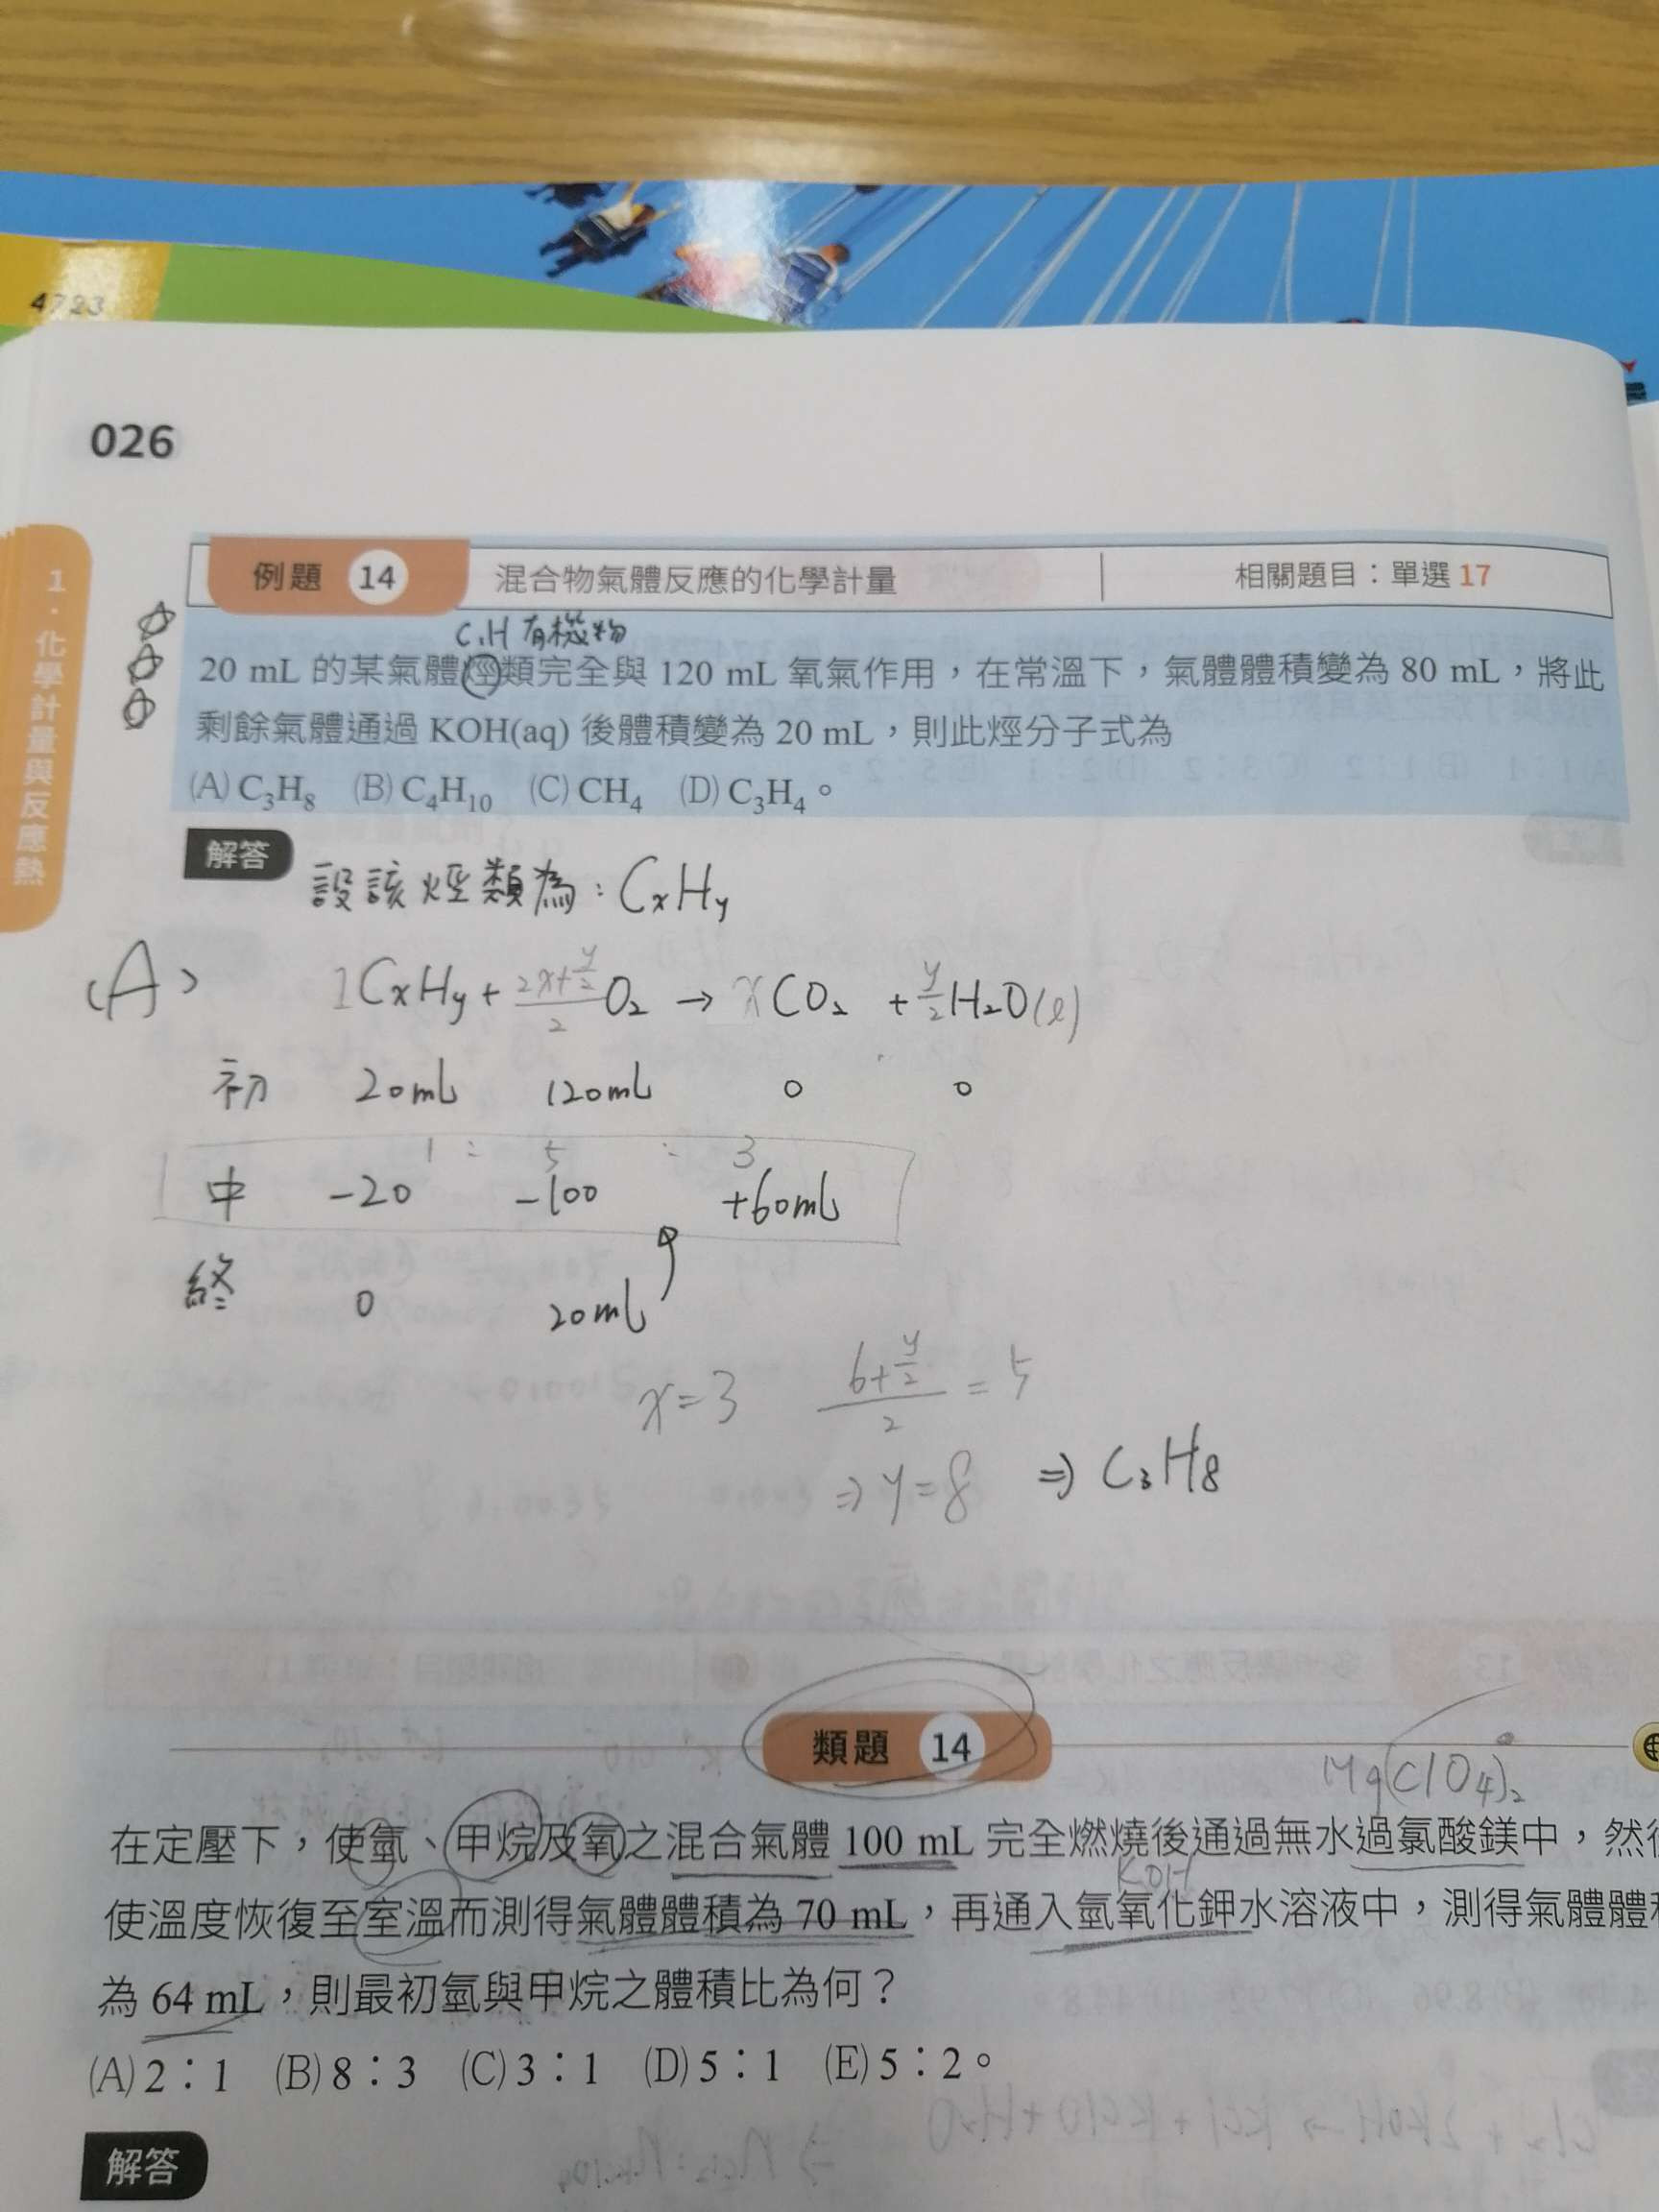 4723
026
1．化學計量與反應熱
例題 14 混合物氣體反應的化學計量 相關題目：單選 17
C,H 有機物
20 mL 的某氣體烴類完全與 120 mL 氧氣作用，在常溫下，氣體體積變為 80 mL，將此
剩餘氣體通過 KOH(aq) 後體積變為 20 mL，則此烴分子式為
(A) C₃H₈ (B) C₄H₁₀ (C) CH₄ (D) C₃H₄。
解答 設該烴類為：CxHy
(A) 1CxHy + (2x+y/2)/2 O₂ → xCO₂ + y/2 H₂O(l)
初 20mL 120mL 0 0
1 : 5 : 3
中 -20 -100 +60mL
終 0 20mL
x=3 (6+y/2)/2 = 5
⇒ y=8 ⇒ C₃H₈
類題 14
Mg(ClO₄)₂
在定壓下，使氫、甲烷及氧之混合氣體 100 mL 完全燃燒後通過無水過氯酸鎂中，然
KOH
使溫度恢復至室溫而測得氣體體積為 70 mL，再通入氫氧化鉀水溶液中，測得氣體體
為 64 mL，則最初氫與甲烷之體積比為何？
(A) 2：1 (B) 8：3 (C) 3：1 (D) 5：1 (E) 5：2。
解答